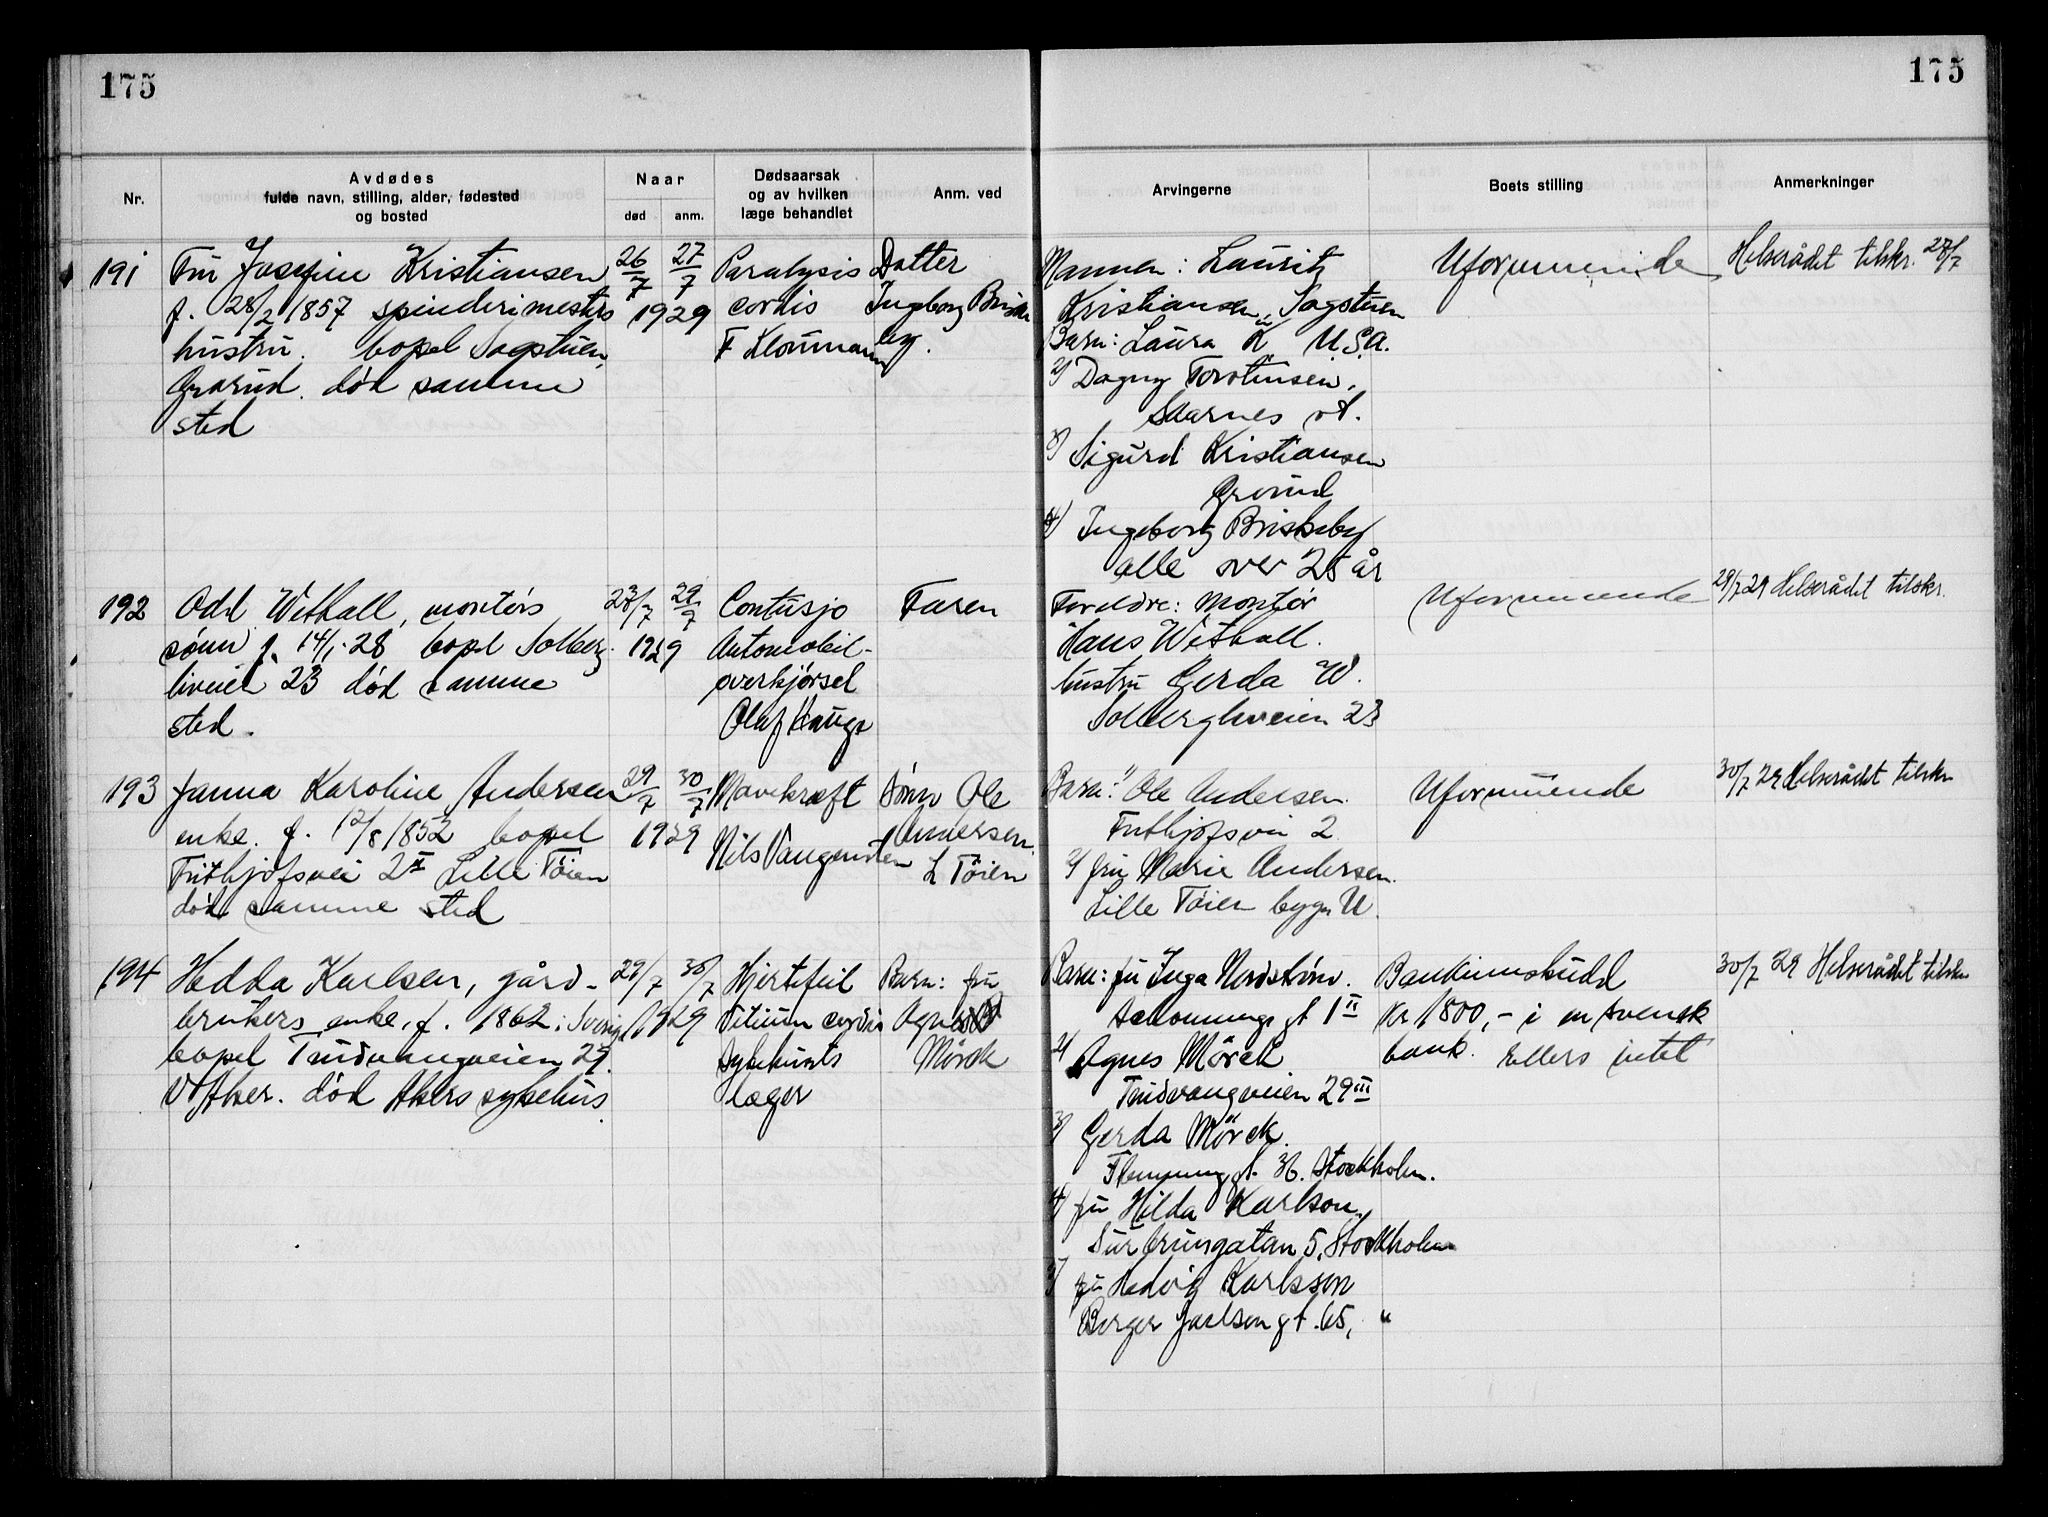 175
175
Nr.
Avdødes
fulde navn, stilling, alder, fødested
og bosted
Naar
død
anm.
Dødsaarsak
og av hvilken
læge behandlet
Anm. ved
Arvingerne
Boets stilling
Anmerkninger
191
Fru Josefine Kristiansen
f. 28/2 1857 spinderimesters
hustru. bopel Sagstuen,
Grorud. død samme
sted
26/7
27/7
1929
Paralysis
cordis
F Kloumann
Datter
Ingeborg Briske
by.
Mannen: Lauritz
Kristiansen, Sagstuen
Barn: Laura K U.S.A.
2) Dagny Torstensen,
Skarnes st.
3) Sigurd Kristiansen
Grorud
4) Ingeborg Briskeby
alle over 25 år
Uformuende
Helserådet tilskr. 27/7
192
Odd Wethall, montørs
sønn f. 14/1-28 bopl Solberg
liveien 23 død samme
sted.
23/7
29/7
1929
Contusjo
Automobil-
overkjørsel
Olaf Hauge
Faren
Foreldre: Montør
Hans Wethall.
hustru Gerda W.
Solbergliveien 23
Uformuende
29/7 29 Helserådet tilskr.
193
Janna Karoline Andersen
enke. f. 12/8 1852 bopel
Frithjofsvei 2 II Lille Tøien
død samme sted
29/7
30/7
1929
Mavekræft
Nils Vangensten
Sønn Ole
Andersen.
L Tøien
Barn: 1) Ole Andersen.
Frithjofsvei 2
2) fru Marie Andersen.
Lille Tøien bygn U.
Uformuende
30/7 29 Helserådet tilskr
194
Hedda Karlsen, gård-
brukers enke, f. 1862 i Sverige
bopel Trudvangveien 29.
V Aker. død Akers sykehus.
29/7
30/7
1929
Hjertefeil
Vitium cordis
sykehusets
læger
Barn: fru
Agnes
Mörck
Barn: fru Inga Nordstrøm.
gt 1 II
2) Agnes Mörck
Trudvangveien 29 III
3) Gerda Mörck.
Flemminggt. 36. Stockholm.
4) fru Hilda Karlson,
Surbrunsgatan 5, Stockholm
5) fru Hedvig Karlsson
Berger Jarlsen gt. 65, "
Bankinnskudd
Kr 1800,- i en svensk
bank. Ellers intet
30/7 29 Helserådet tilskr